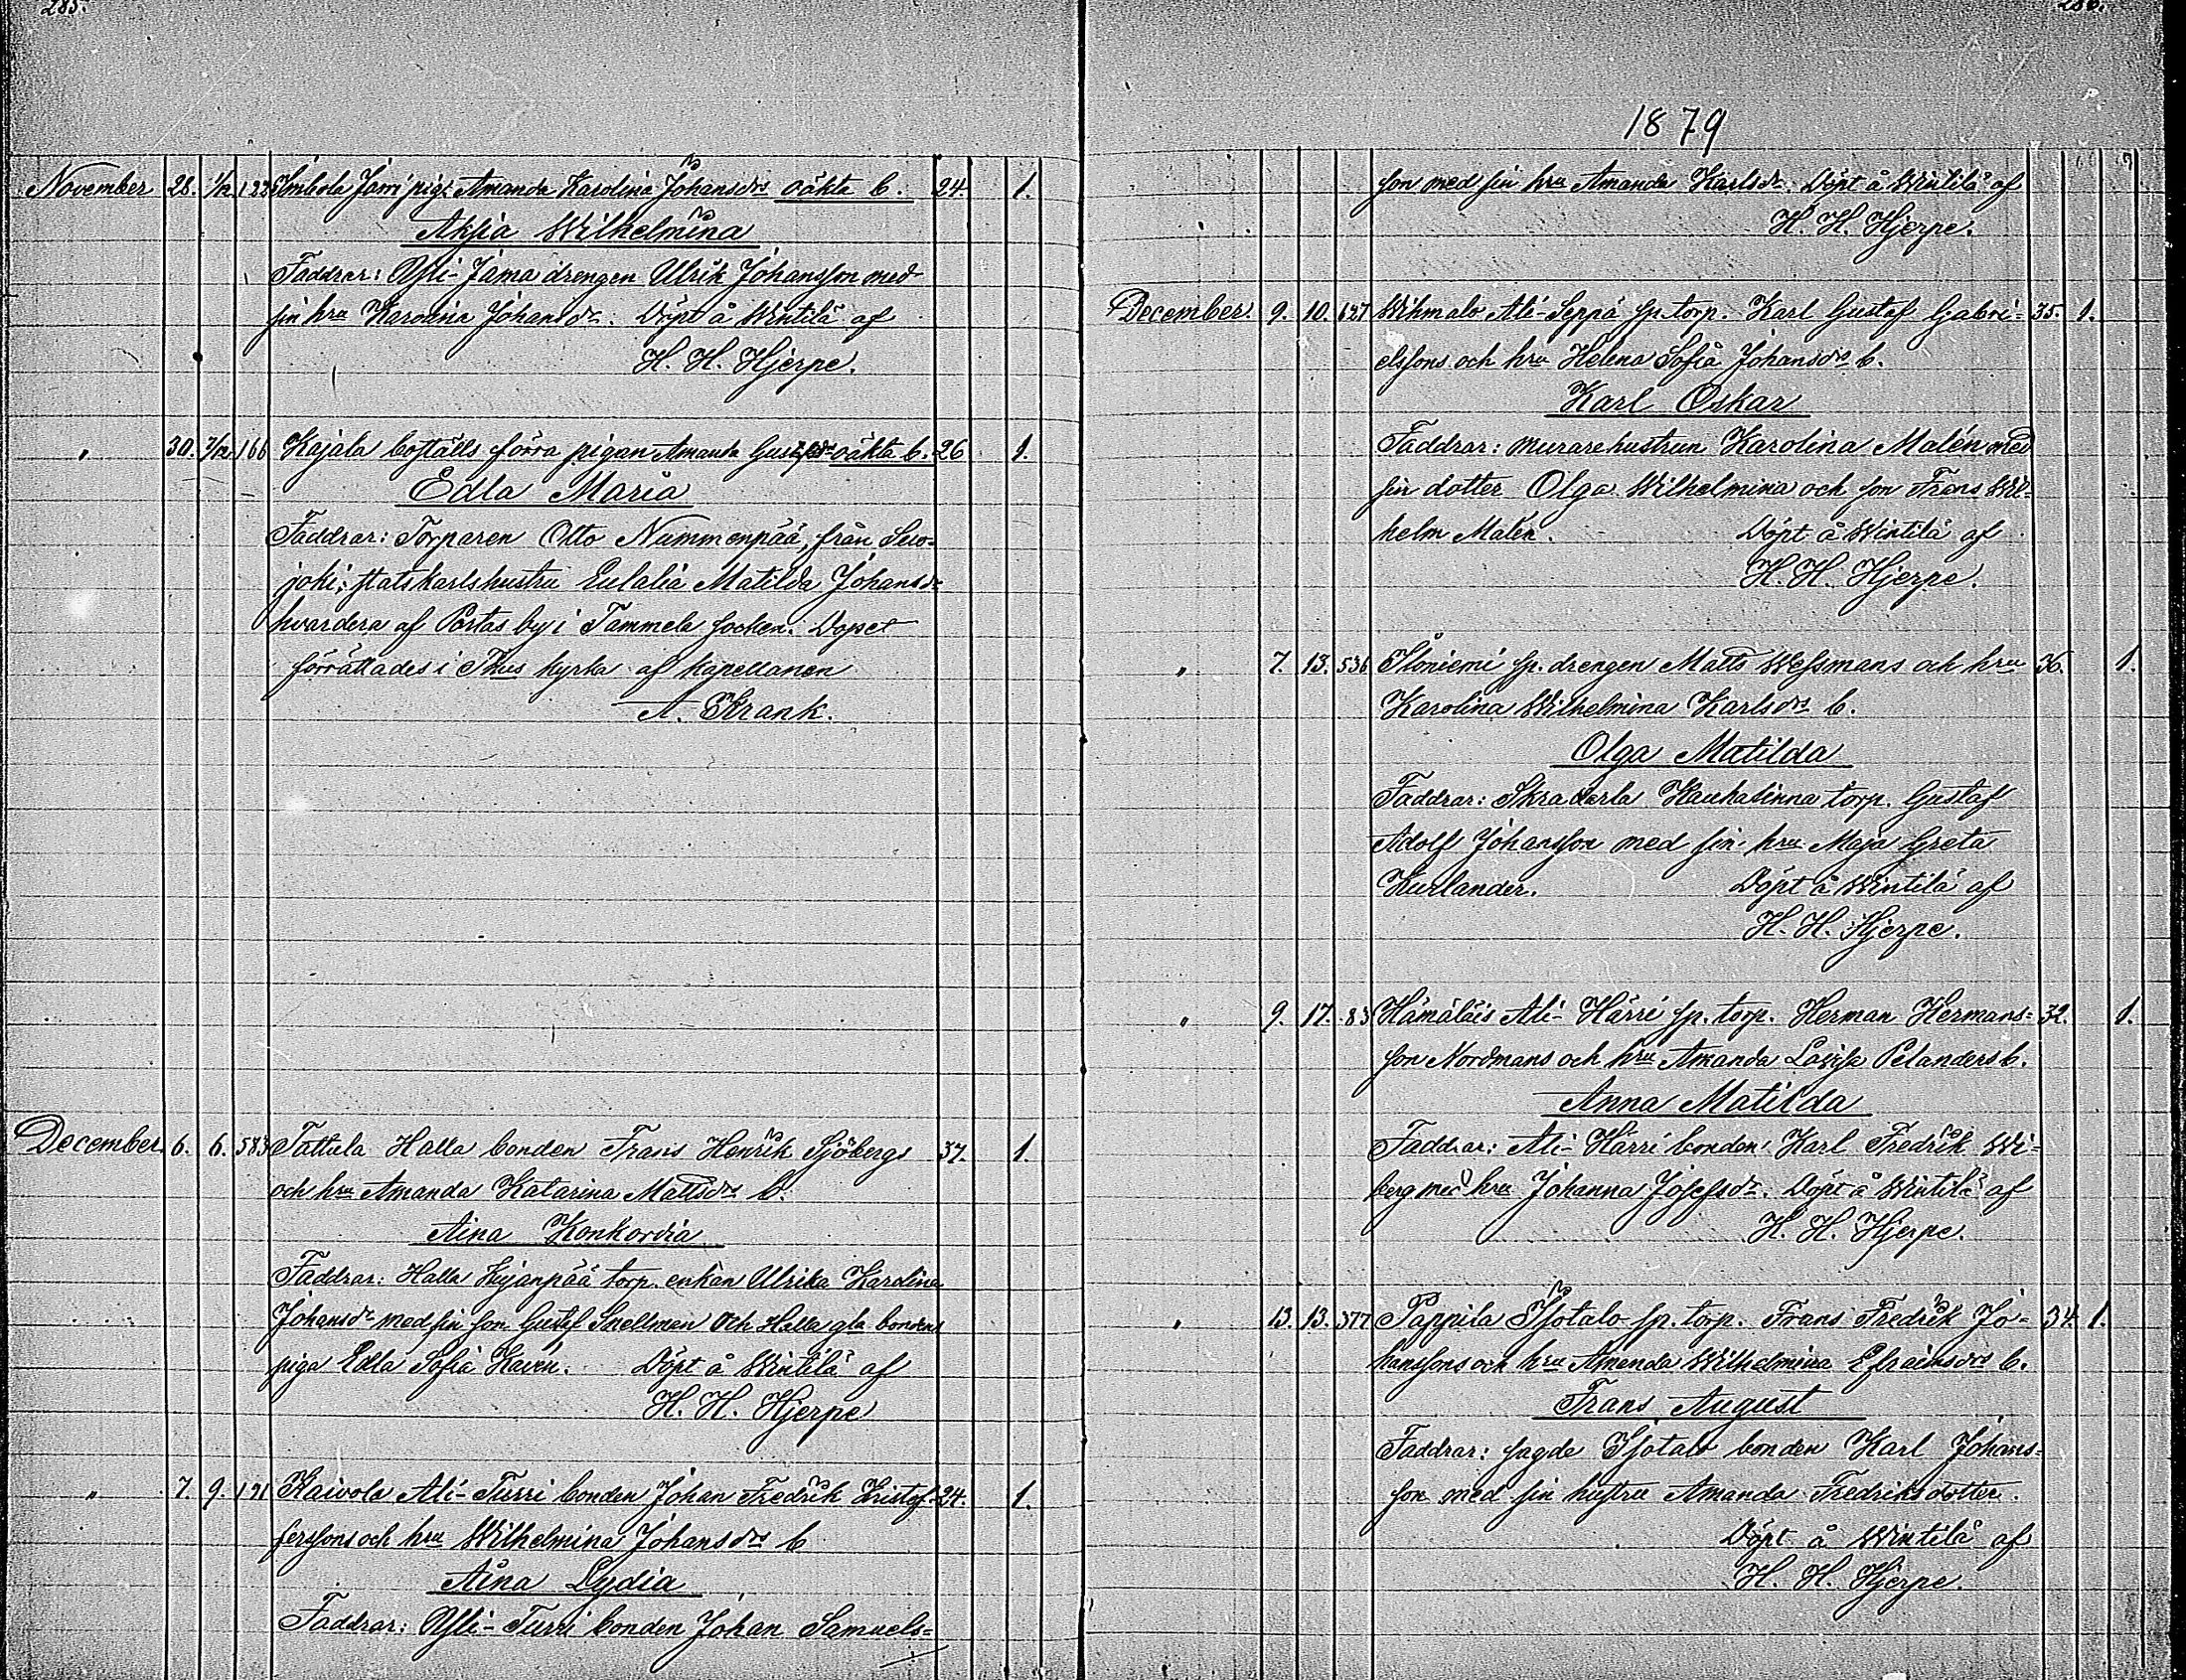 285.
November 28. 1/12 133 Imhola Jarri pig. Amanda Karolina Johansdrs oäkta b. 24. 1.
Aksia Wilhelmina
Faddrar: Yli-Jama drengen Ulrik Johansson med
sin hru Karolina Johansdr. Döpt å Wintilä af
H. H. Hjerpe.
" 30. 7/12 166 Kajala boställs förra pigan Amanda Gustfsdrs oäkta b. 26 1.
Edla Maria
Faddrar: Torparen Otto Nummenpää, från Suo-
joki; statskarlshustru Eulalia Matilda Johansdr
hvardera af Portas by i Tammela socken. Dopet
förrättades i Thus kyrka af kapellanen
A. Ekrank.
December. 6. 6. 583 Tattula Halla bonden Frans Henrik Sjöbergs 37. 1.
och hru Amanda Katarina Mattsdrs b.
Aina Konkordia
Faddrar: Halla Kujanpää torp. enkan Ulrika Karolina
Johansdr med sin son Gustaf Snellman och Halla gla bondens
piga Edla Sofia Kavén. Döpt å Wintilä af
H. H. Hjerpe
" 7. 9. 191 Kaivola Ali-Turri bonden Johan Fredrik Kristof- 24. 1.
ferssons och hru Wilhelmina Johansdrs b
Aina Lydia
Faddrar: Yli-Turri bonden Johan Samuels-
286.
1879
son med sin hru Amanda Karlsdr. Döpt å Wintilä af
H. H. Hjerpe.
December. 9. 10. 627 Wihmalo Ali-Seppä sp. torp. Karl Gustaf Gabri- 35. 1.
elssons och hru Helena Sofia Johansdrs b.
Karl Oskar
Faddrar: murarehustrun Karolina Malén med
sin dotter Olga Wilhelmina och son Frans Wil-
helm Malén. Döpt å Wintilä af
H. H. Hjerpe.
" 7. 13. 536 Iloniemi sp. drengen Matts Wessmans och hru 36. 1.
Karolina Wilhelmina Karlsdrs b.
Olga Matilda
Faddrar: Skradarla Kauhalinna torp. Gustaf
Adolf Johansson med sin hru Maja Greta
Kurlander. Döpt å Wintilä af
H. H. Hjerpe.
" 9. 17. 83 Hämäläis Ali-Härri sp. torp. Herman Hermans- 32. 1.
son Nordmans och hru Amanda Lovisa Pelanders b.
Anna Matilda
Faddrar: Ali-Härri bonden Karl Fredrik Wi-
berg med hru Johanna Josefsdr. Döpt å Wintilä af
H. H. Hjerpe.
" 13. 13. 377 Pappila Isotalo sp. torp. Frans Fredrik Jo- 34 1.
hanssons och hru Amanda Wilhelmina Efraimsdrs b.
Frans August
Faddrar: sagde Isotalo bonden Karl Johans-
son med sin hustru Amanda Fredriksdotter.
Döpt å Wintilä af
H. H. Hjerpe.